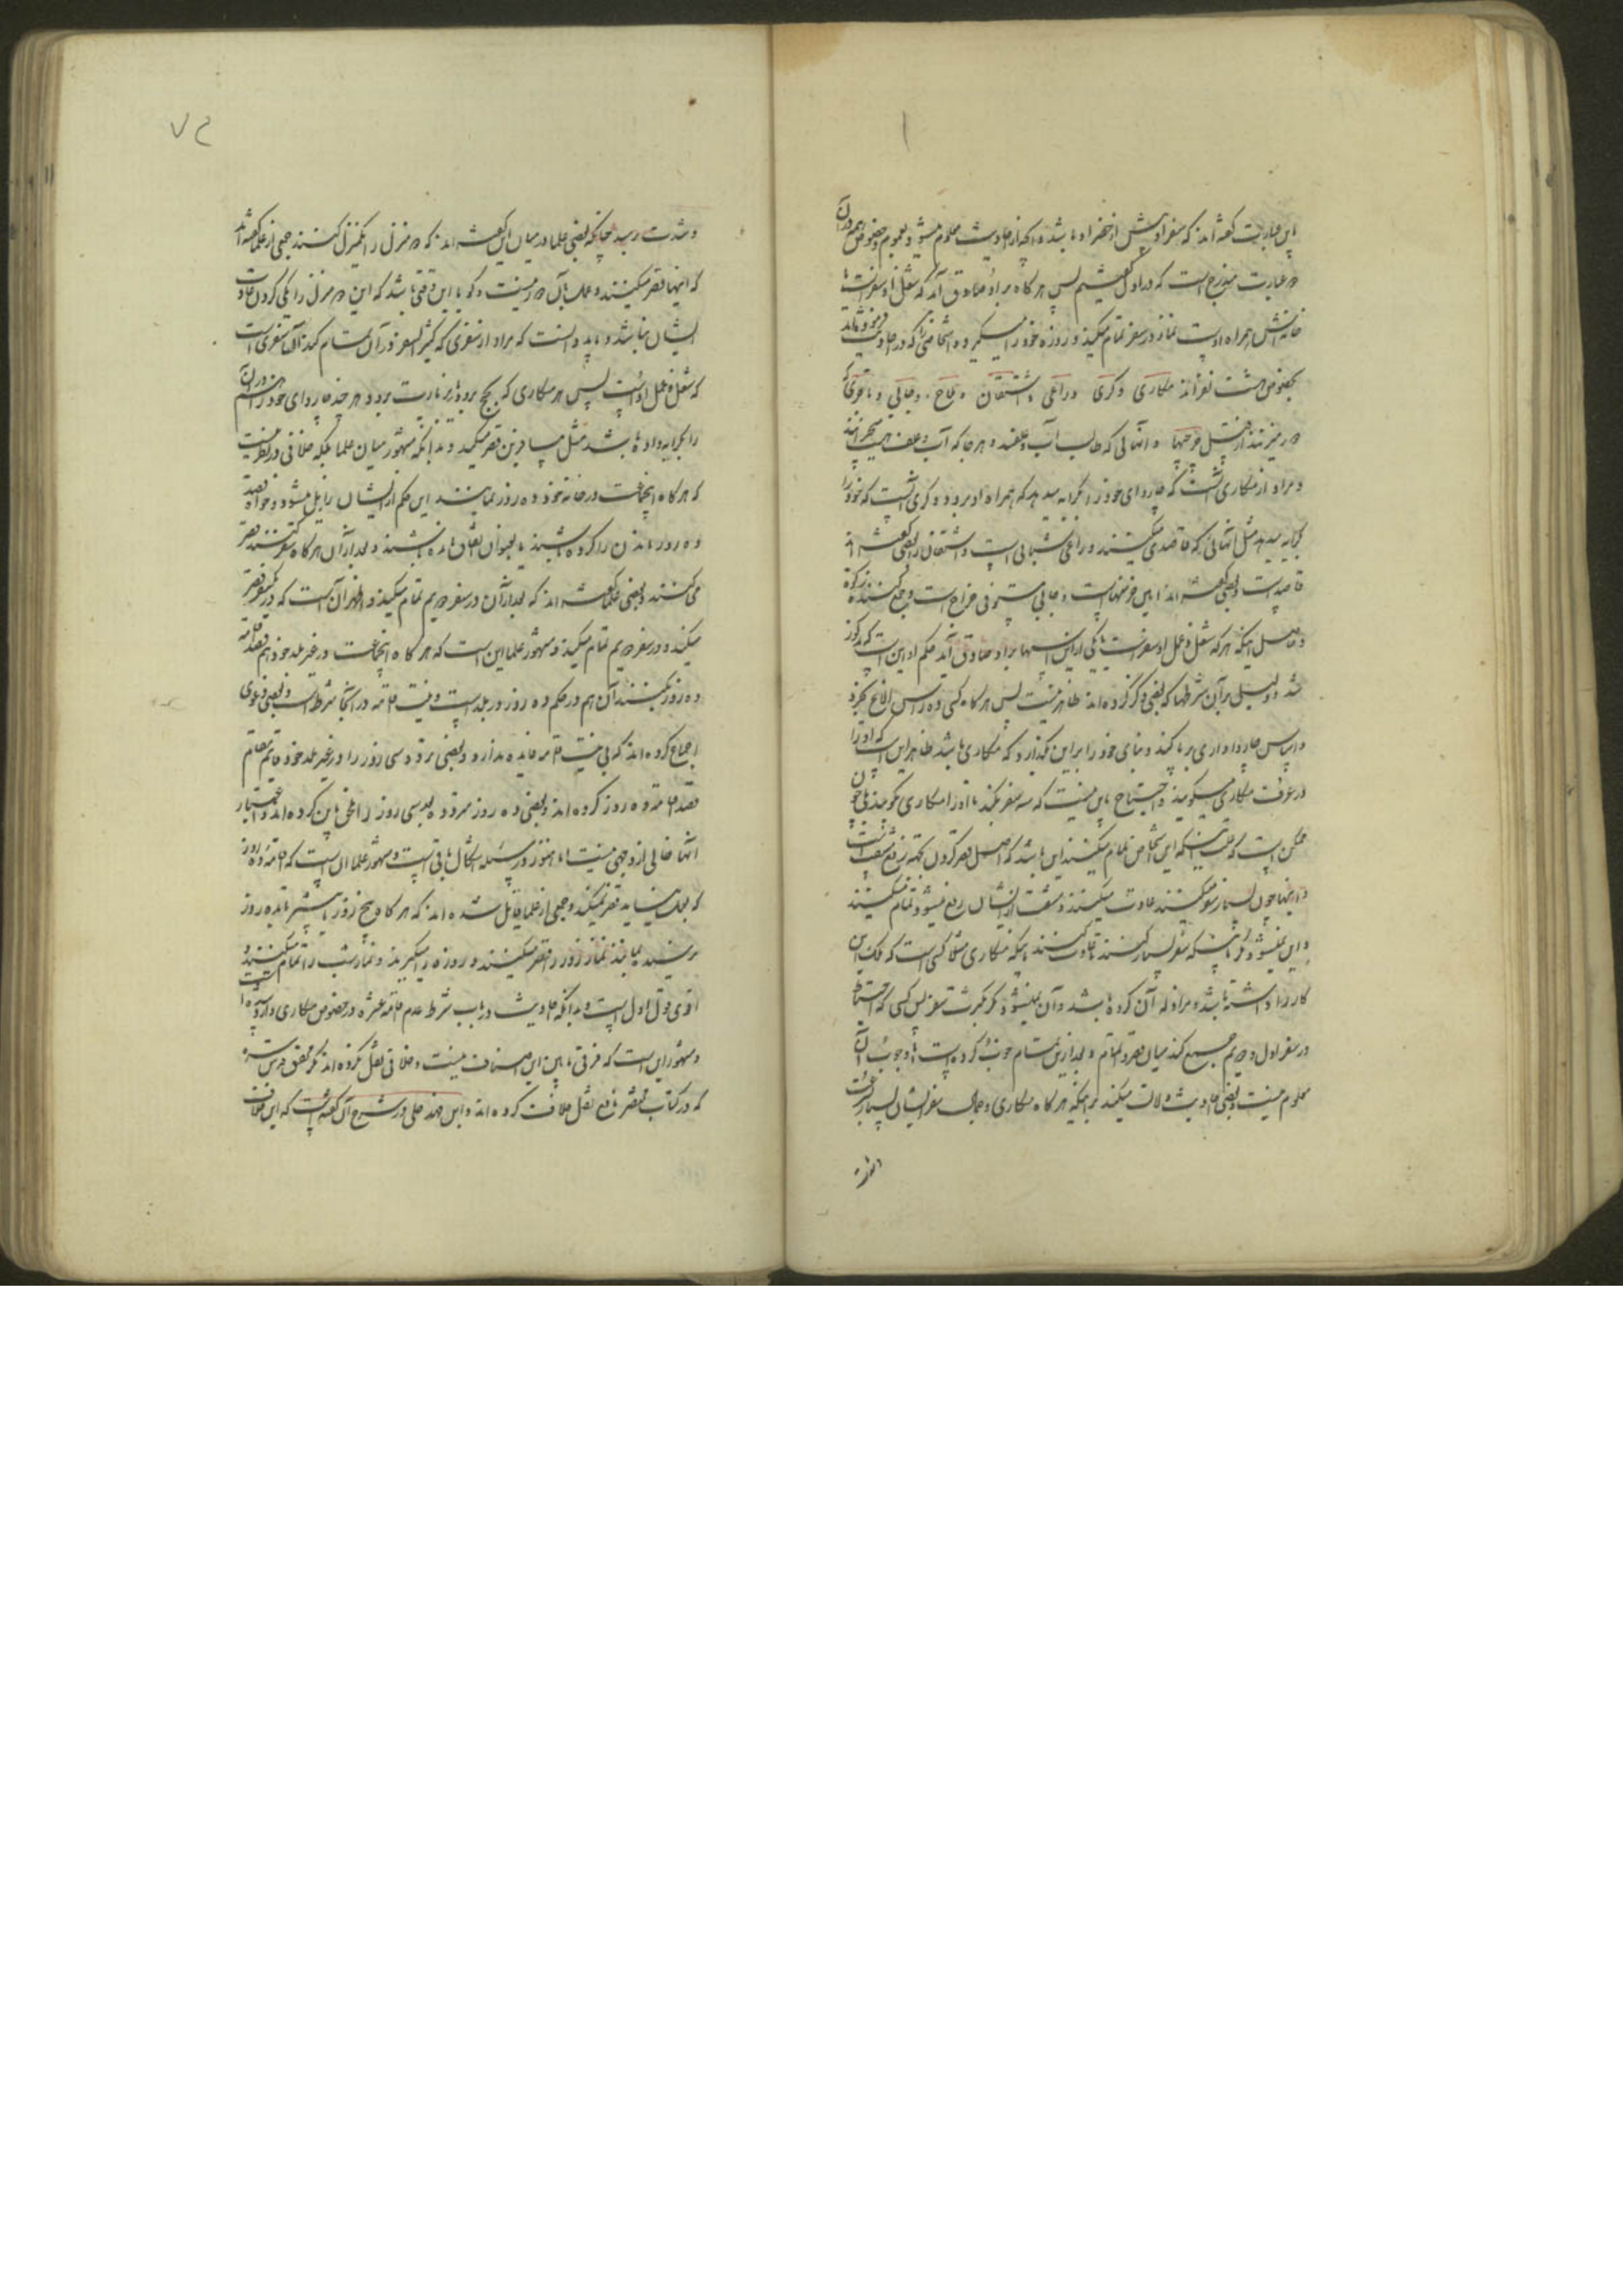 باین عبارت گفته‌اند که سفر او بیش از حضر او باشد و آنچه از احادیث معلوم میشود بعموم و خصوص همه در آن
در عبارت مندرج است که در اول گفتیم پس هرگاه بر او صادق آید که شغل او سفر است یا
خانه‌اش همراه اوست نماز در سفر تمام میکند و روزه خود را میگیرد و اشخاصی را که در احادیث
بخصوص هشت نفرند مکاری و کری و راعی و اشتقان و ملاح و جابی و تاجری که
از پی عرضها و آنهائی که طالب آب و علفند و هر جا که آب و علف هست
و مراد از مکاری آنست که چاروای خود را بکرایه میدهد که همراه او برود و کری آنست که خود را
بکرایه میدهد مثل آنهائی که قاصدی میکنند و راعی شبانی است و اشتقان را بعضی گفته‌اند
قاصد است و بعضی گفته‌اند امین خرمنهاست و جابی مستوفی خراج است و جمع کننده زکوة
و حاصل اینکه هر که شغل و عمل او سفر است یا یکی از این اسمها بر او صادق آید حکم او این است که مذکور
شد و دلیلی بر آن شرطها که بعضی ذکر کرده‌اند ظاهر نیست پس هرگاه کسی ده راس الاغ بخرد
و اساس چارواداری برپا کند و بنای خود را بر این گذارد که مکاری باشد ظاهر این است که او را
در عرف مکاری میگویند و احتیاج باین نیست که سه سفر بکند تا او را مکاری گویند بلی چون
ممکن است که علت اینکه این اشخاص تمام میکنند این باشد که اصل قصر کردن بجهة رفع مشقت است
و اینها چون بسیار سفر میکنند عادت میکنند و مشقت از ایشان رفع میشود تمام میکنند
و این نمیشود مگر باینکه سفر بسیار کنند تا عادت کنند یا اینکه مکاری مثلا کسی است که ملکه این
کار را داشته باشد و مزاوله آن کرده باشد و آن نمیشود مگر بکثرت سفر پس کسی که احتیاط
در سفر اول و دویم جمع کند میان قصر و تمام و بعد از این تمام خوب کرده است اما وجوب آن
معلوم نیست و بعضی احادیث دلالت میکند بر اینکه هرگاه مکاری و جمال سفر ایشان بسیار

و شدت رسید چنانکه بعضی علما در بیان این گفته‌اند که دو منزل را یکمنزل کنند جمعی از علما گفته‌اند
که اینها قصر میکنند و عمل بآن دور نیست و گویا این وقتی باشد که این دو منزل را یکی کردن عادت
ایشان نباشد و باید دانست که مراد از سفری که کثیر السفر در آن تمام کند آن سفری است
که شغل و عمل اوست پس هر مکاری که بحج برود یا بزیارت برود هر چند چاروای خود را هم در آن
را بکرایه داده باشد مثل مسافرین قصر میکند و بدانکه مشهور میان علما بلکه خلافی در نظر نیست
که هرگاه اینجماعت در خانه خود ده روز بمانند این حکم از ایشان زایل میشود و خواه قصد
ده روز ماندن را کرده باشند یا بعنوان اتفاق مانده باشند و بعد از آن هرگاه سفر کنند قصر
می‌کنند و بعضی علما گفته‌اند که بعد از آن در سفر دویم تمام میکند و اظهر آن است که در یک سفر قصر
میکند و در سفر دویم تمام میکند و مشهور علما این است که هرگاه اینجماعت در غیر بلد خود هم قصد اقامه
ده روز بکنند آن هم در حکم ده روز در بلد است و نیت اقامه در آنجا شرط است و بعضی دعوی
اجماع کرده‌اند که بی نیت اقامه فایده ندارد و بعضی تردد سی روز را در غیر بلد خود قایم مقام
قصد اقامه ده روز کرده‌اند و بعضی ده روز تردد بعد سی روز را ملحق باین کرده‌اند و اعتبار
آنها خالی از وجهی نیست اما هنوز در مسئله اشکال باقی است و مشهور علما آن است که اقامه ده روز
که بعمل نیاید قصر نمیکند و جمعی از علما قایل شده‌اند که هرگاه پنج روز یا بیشتر تا بده روز
نرسیده بمانند نماز روز را قصر میکنند و روزه را میگیرند و نماز شب را تمام میکنند و
اقوی قول اول است و بدانکه احادیث در باب شرط عدم اقامه عشره در خصوص مکاری وارد شده است
و مشهور این است که فرقی ما بین این اصناف نیست و خلافی نقل نکرده‌اند مگر محقق قدس سره
که در کتاب مختصر نافع نقل خلاف کرده‌اند و ابن فهد حلی در شرح آن گفته است که این خلاف